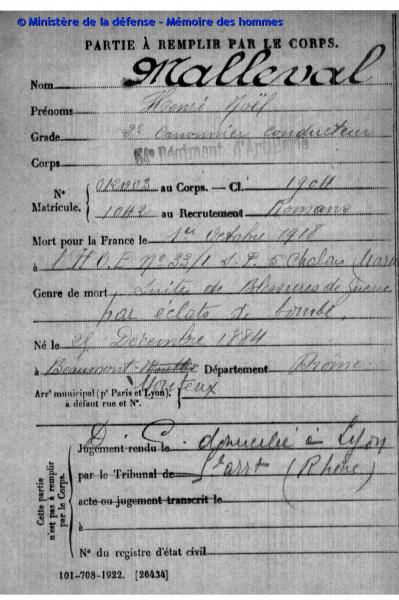 © Ministère de la défense - Mémoire des hommes
PARTIE À REMPLIR PAR LE CORPS.
Nom Malleval
Prénoms Henri Noël
Grade 2e canonnier conducteur
Corps Régiment d'Artillerie
N° Matricule. au Corps. — Cl. 1904
1042 au Recrutement Romans
Mort pour la France le 1er Octobre 1918
à l'H.O.E N° 33/1 S.P. 5 Chalons Marne
Genre de mort Suites de Blessures de Guerre
par éclats de bombe.
Né le 25 Décembre 1884
à Beaumont Département Drôme
Monteux
Arrt municipal (pr Paris et Lyon), à défaut rue et N°.
D. C. domicilié à Lyon
Jugement rendu le
par le Tribunal de arrt (Rhône)
acte ou jugement transcrit le
à
N° du registre d'état civil
Cette partie n'est pas à remplir par le Corps.
101-708-1922. [26434]